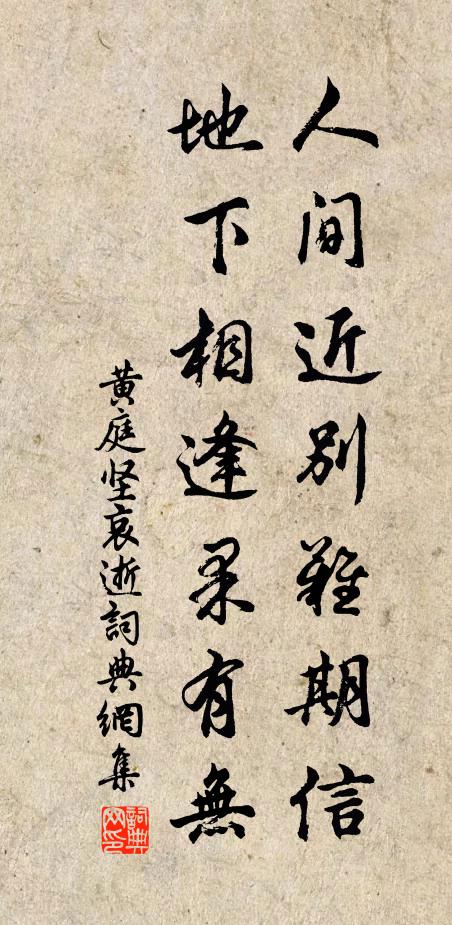 人间近别難期信
地下相逢果有無
黄庭坚哀逝詞典網集
詞典网印